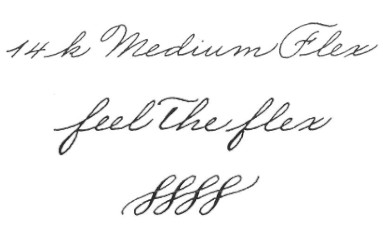 14k Medium Flex
feel The flex